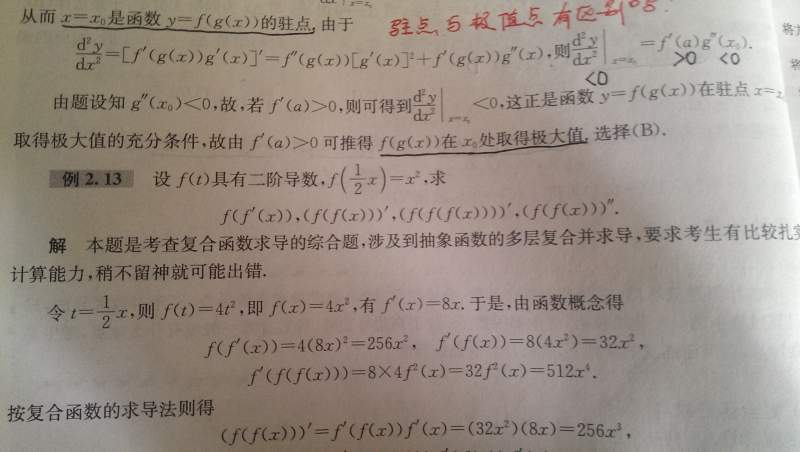 从而 x=x₀是函数 y=f(g(x))的驻点,由于
驻点与极值点有区别吗?
d²y/dx²=[f′(g(x))g′(x)]′=f″(g(x))[g′(x)]²+f′(g(x))g″(x),则d²y/dx²|x=x₀=f′(a)g″(x₀).
<0 >0 <0
由题设知 g″(x₀)<0,故,若 f′(a)>0,则可得到d²y/dx²|x=x₀<0,这正是函数 y=f(g(x))在驻点 x=x₀
取得极大值的充分条件,故由 f′(a)>0 可推得 f(g(x))在 x₀处取得极大值. 选择(B).
例 2.13 设 f(t)具有二阶导数,f(1/2 x)=x²,求
f(f′(x)),(f(f(x)))′,(f(f(f(x))))′,(f(f(x)))″.
解 本题是考查复合函数求导的综合题,涉及到抽象函数的多层复合并求导,要求考生有比较扎实
计算能力,稍不留神就可能出错.
令 t=1/2 x,则 f(t)=4t²,即 f(x)=4x²,有 f′(x)=8x. 于是,由函数概念得
f(f′(x))=4(8x)²=256x², f′(f(x))=8(4x²)=32x²,
f′(f(f(x)))=8×4f²(x)=32f²(x)=512x⁴.
按复合函数的求导法则得
(f(f(x)))′=f′(f(x))f′(x)=(32x²)(8x)=256x³,